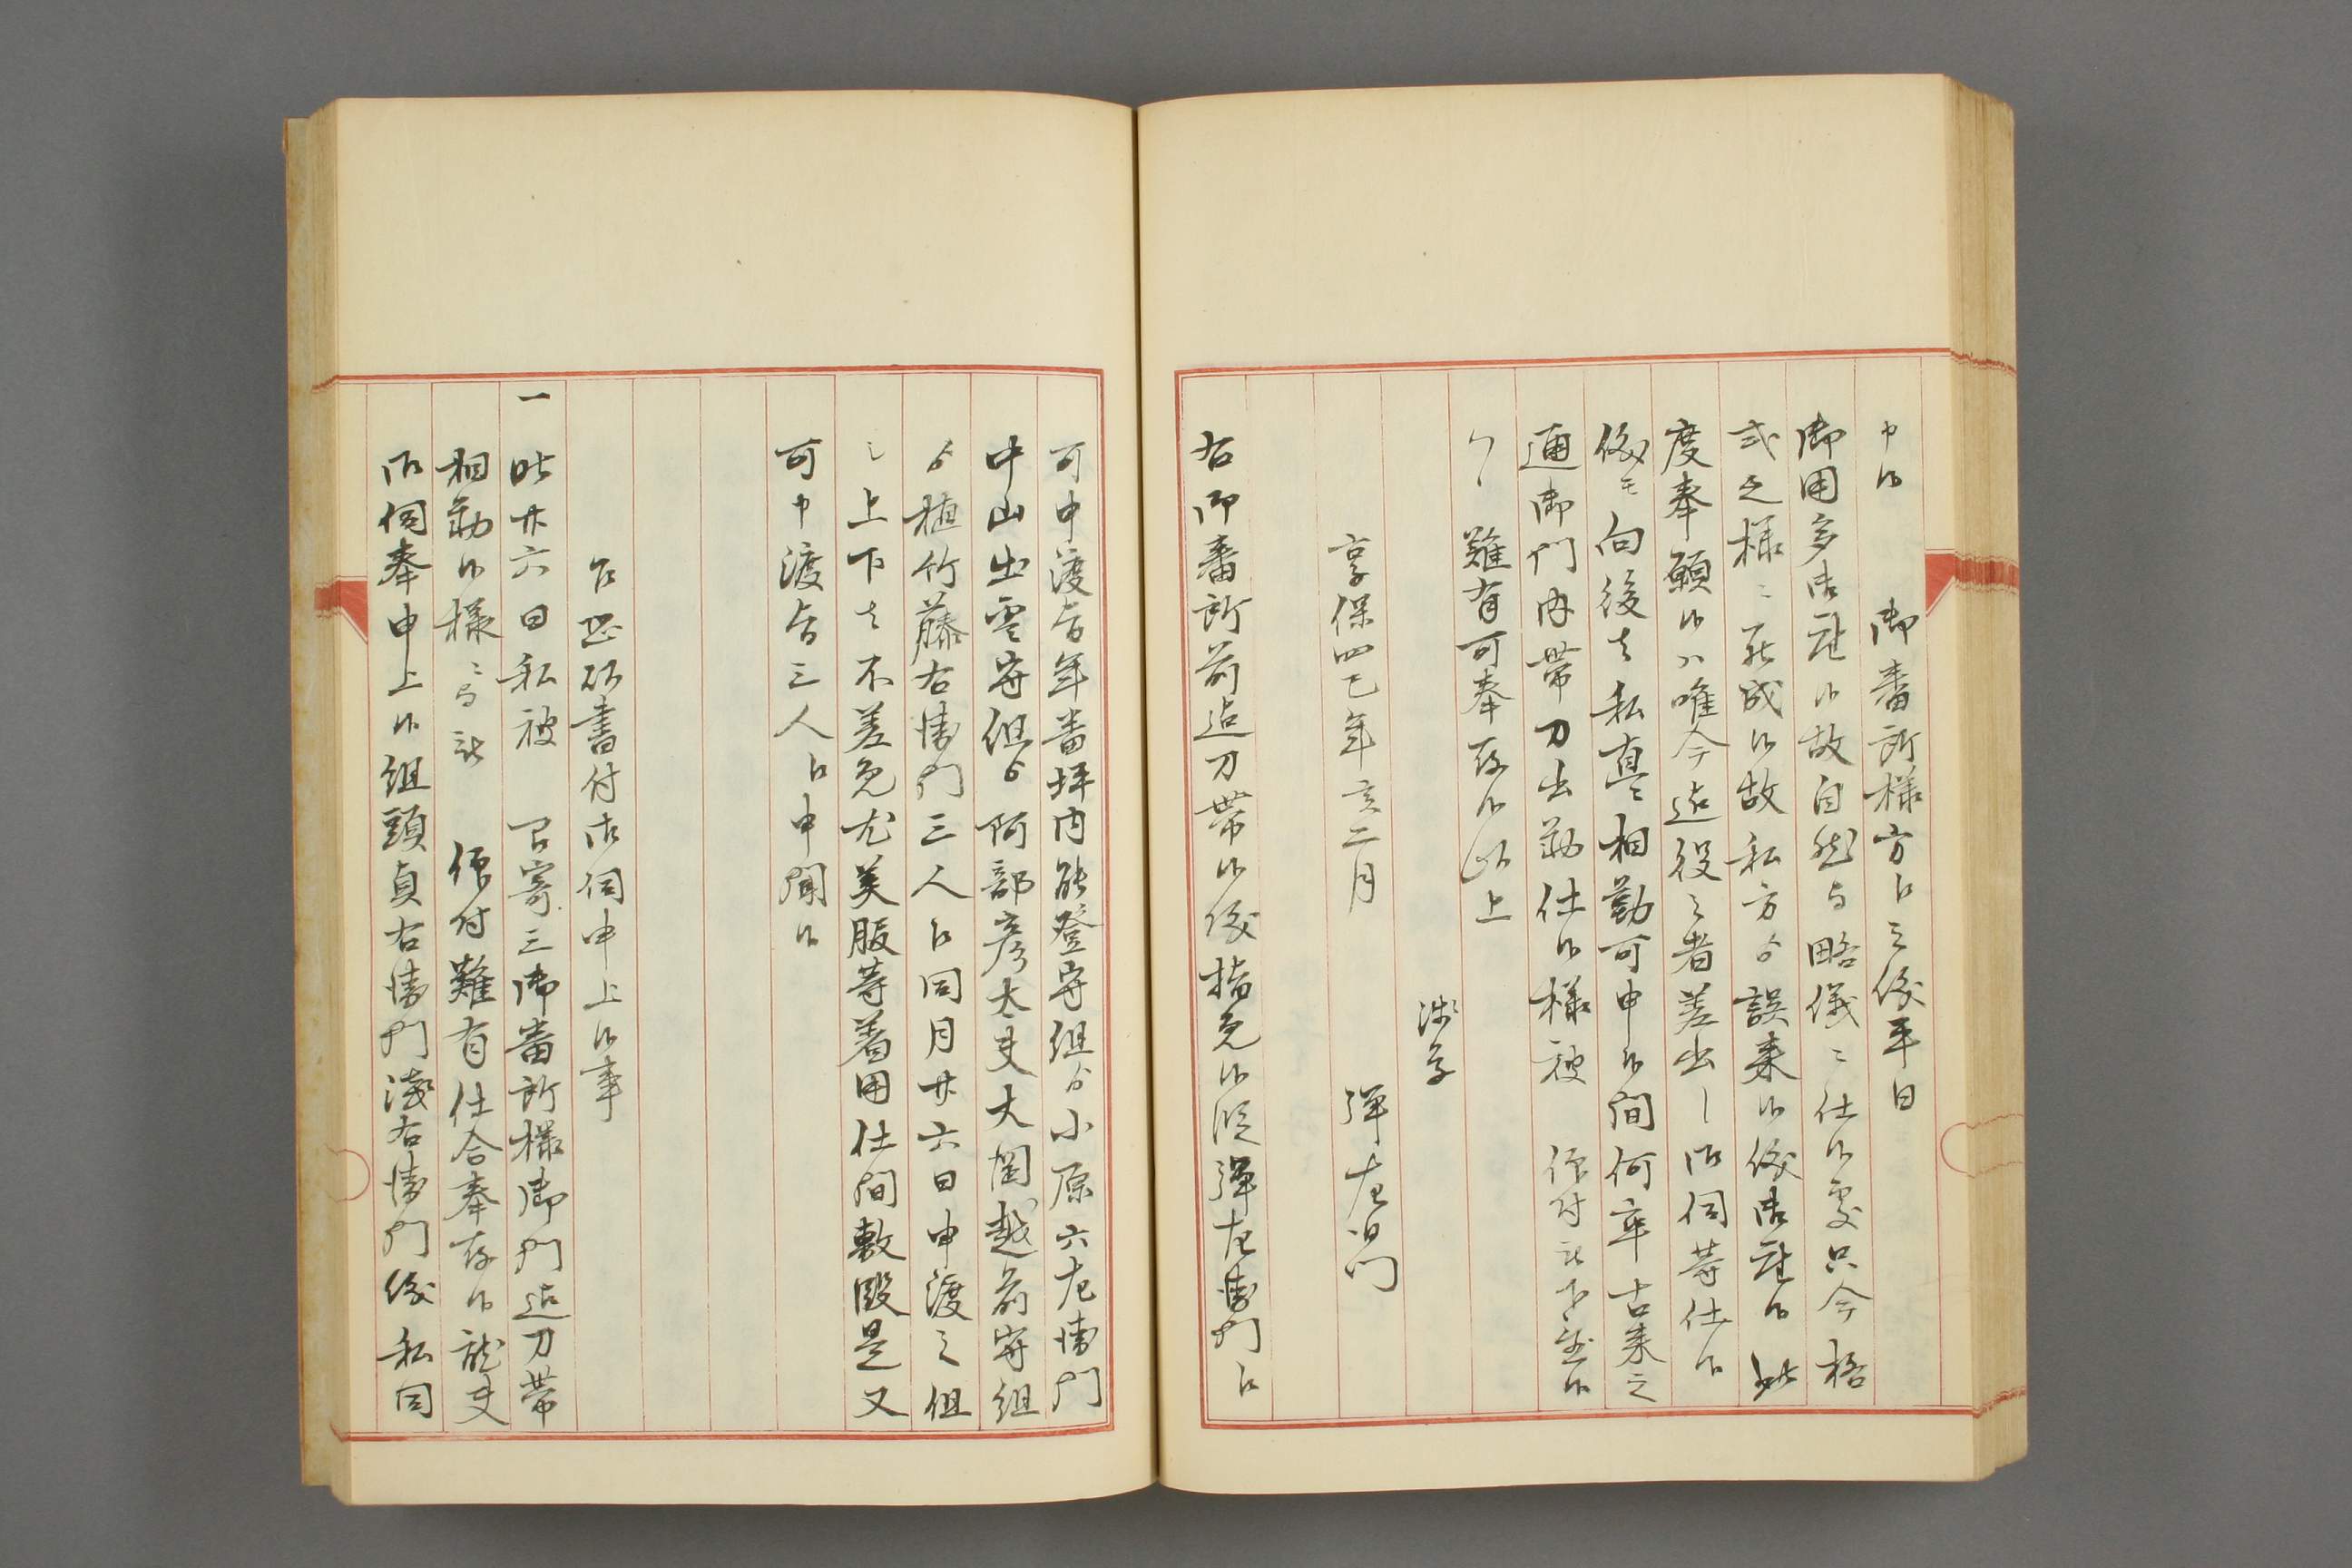 申候 御番所様方江之儀平日
御用多御座候故自然与略儀ニ仕候処只今格
式之様ニ罷成候故私方ゟ誤来候儀御座候此
度奉願候ハ唯今迄役之者差出し御伺等仕候
儀モ向後者私直ニ相勤可申候間何卒古来之
通御門内帯刀出勤仕候様被 仰付被下置候
ハヽ難有可奉存候以上
浅草
享保四己年亥二月 弾左衛門
右御番所前迄刀帯候儀指免候段弾左衛門江
可申渡旨年番坪内能登守組ゟ小原六左衛門
中山出雲守組ゟ阿部彦太夫大岡越前守組
ゟ植竹藤右衛門三人江同月廿六日申渡之但
之上下者不差免尤美服等着用仕間敷段是又
可申渡旨三人江申聞候
乍恐以書付御伺申上候事
一此廿六日私被 召寄三御番所様御門迄刀帯
相勤候様ニ与被 仰付難有仕合奉存候就夫
御伺奉申上候組頭貞右衛門浅右衛門儀私同